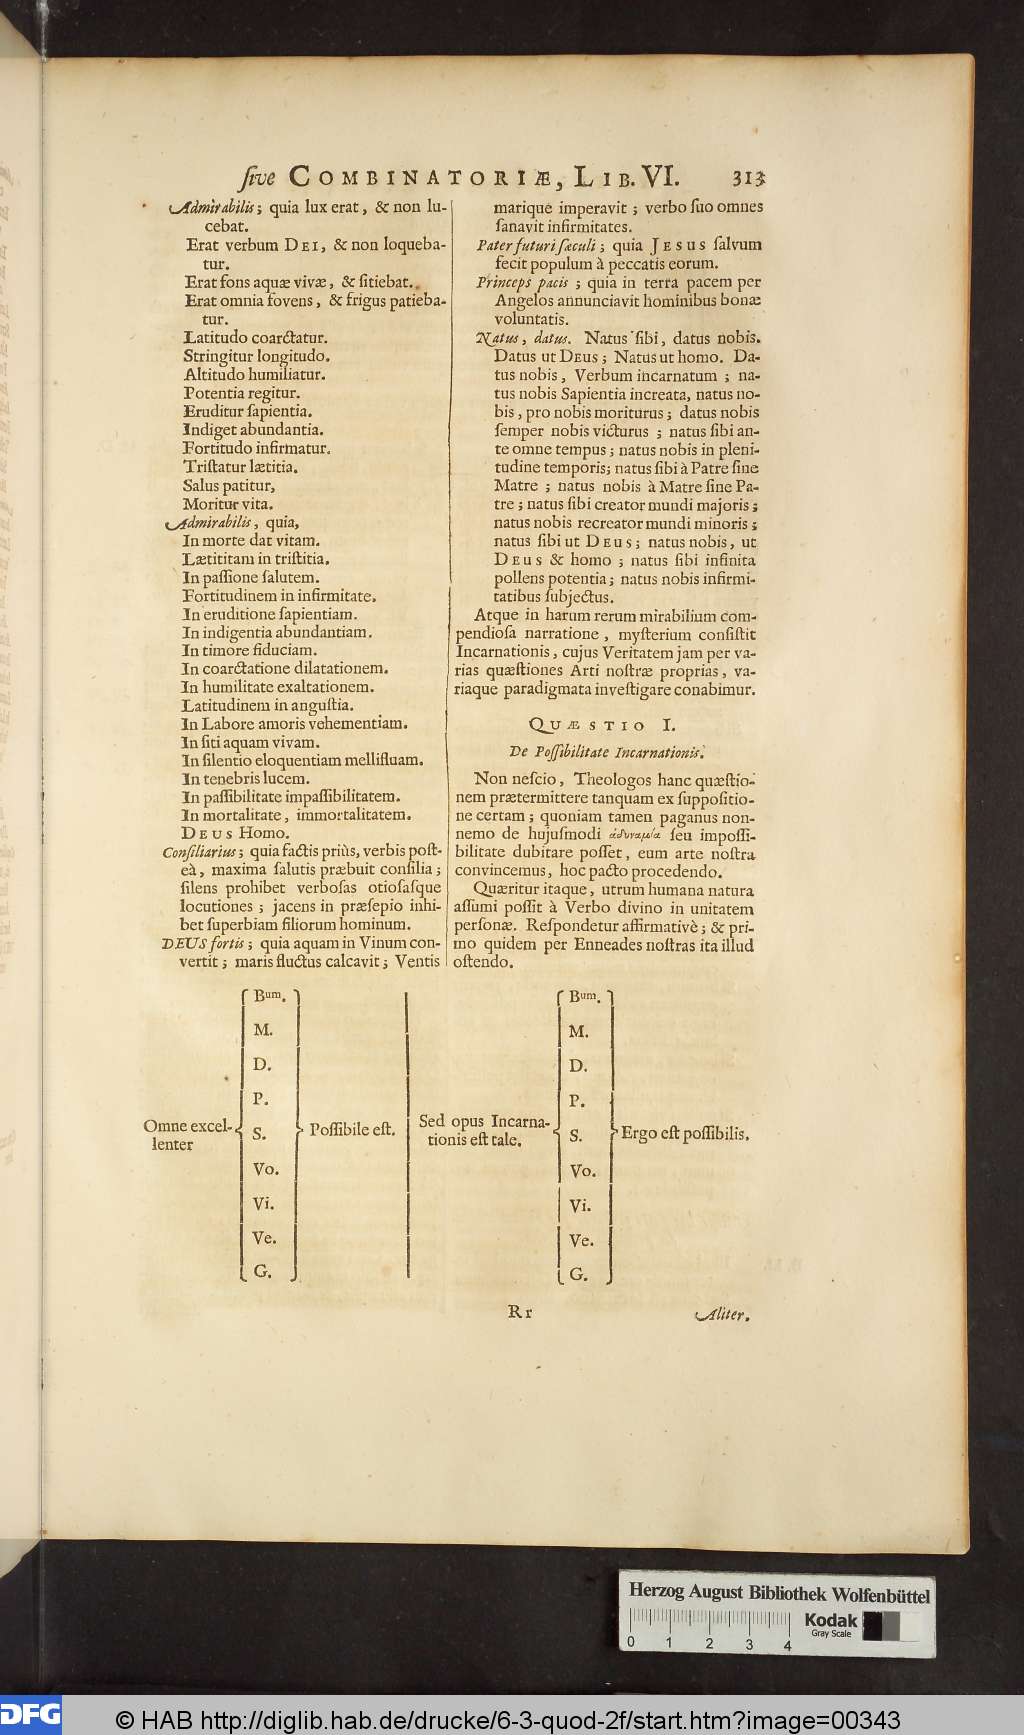 ſive COMBINATORIÆ, LIB. VI. 313
Admirabilis; quia lux erat, & non lu-
cebat.
Erat verbum DEI, & non loqueba-
tur.
Erat fons aquæ vivæ, & ſitiebat.
Erat omnia fovens, & frigus patieba-
tur.
Latitudo coarctatur.
Stringitur longitudo.
Altitudo humiliatur.
Potentia regitur.
Eruditur ſapientia.
Indiget abundantia.
Fortitudo infirmatur.
Triſtatur lætitia.
Salus patitur,
Moritur vita.
Admirabilis, quia,
In morte dat vitam.
Lætititam in triſtitia.
In paſſione ſalutem.
Fortitudinem in infirmitate.
In eruditione ſapientiam.
In indigentia abundantiam.
In timore fiduciam.
In coarctatione dilatationem.
In humilitate exaltationem.
Latitudinem in anguſtia.
In Labore amoris vehementiam.
In ſiti aquam vivam.
In ſilentio eloquentiam mellifluam.
In tenebris lucem.
In paſſibilitate impaſſibilitatem.
In mortalitate, immortalitatem.
DEUS Homo.
Conſiliarius; quia factis priùs, verbis poſt-
eà, maxima ſalutis præbuit conſilia;
ſilens prohibet verboſas otioſaſque
locutiones; jacens in præſepio inhi-
bet ſuperbiam filiorum hominum.
DEUS fortis; quia aquam in Vinum con-
vertit; maris fluctus calcavit; Ventis
marique imperavit; verbo ſuo omnes
ſanavit infirmitates.
Pater futuri ſæculi; quia JESUS ſalvum
fecit populum à peccatis eorum.
Princeps pacis; quia in terra pacem per
Angelos annunciavit hominibus bonæ
voluntatis.
Natus, datus. Natus ſibi, datus nobis.
Datus ut DEUS; Natus ut homo. Da-
tus nobis, Verbum incarnatum; na-
tus nobis Sapientia increata, natus no-
bis, pro nobis moriturus; datus nobis
ſemper nobis victurus; natus ſibi an-
te omne tempus; natus nobis in pleni-
tudine temporis; natus ſibi à Patre ſine
Matre; natus nobis à Matre ſine Pa-
tre; natus ſibi creator mundi majoris;
natus nobis recreator mundi minoris;
natus ſibi ut DEUS; natus nobis, ut
DEUS & homo; natus ſibi infinita
pollens potentia; natus nobis infirmi-
tatibus ſubjectus.
Atque in harum rerum mirabilium com-
pendioſa narratione, myſterium conſiſtit
Incarnationis, cujus Veritatem jam per va-
rias quæſtiones Arti noſtræ proprias, va-
riaque paradigmata inveſtigare conabimur.
QUÆSTIO I.
De Poſſibilitate Incarnationis.
Non neſcio, Theologos hanc quæſtio-
nem prætermittere tanquam ex ſuppoſitio-
ne certam; quoniam tamen paganus non-
nemo de hujuſmodi ἀδυναμία ſeu impoſſi-
bilitate dubitare poſſet, eum arte noſtra
convincemus, hoc pacto procedendo.
Quæritur itaque, utrum humana natura
aſſumi poſſit à Verbo divino in unitatem
perſonæ. Reſpondetur affirmativè; & pri-
mo quidem per Enneades noſtras ita illud
oſtendo.
Omne excel-
lenter
Bum.
M.
D.
P.
S.
Vo.
Vi.
Ve.
G.
Poſſibile eſt.
Sed opus Incarna-
tionis eſt tale.
Bum.
M.
D.
P.
S.
Vo.
Vi.
Ve.
G.
Ergo eſt poſſibilis.
Rr
Aliter.
Herzog August Bibliothek Wolfenbüttel
0 1 2 3 4
Kodak
Gray Scale
DFG
© HAB http://diglib.hab.de/drucke/6-3-quod-2f/start.htm?image=00343